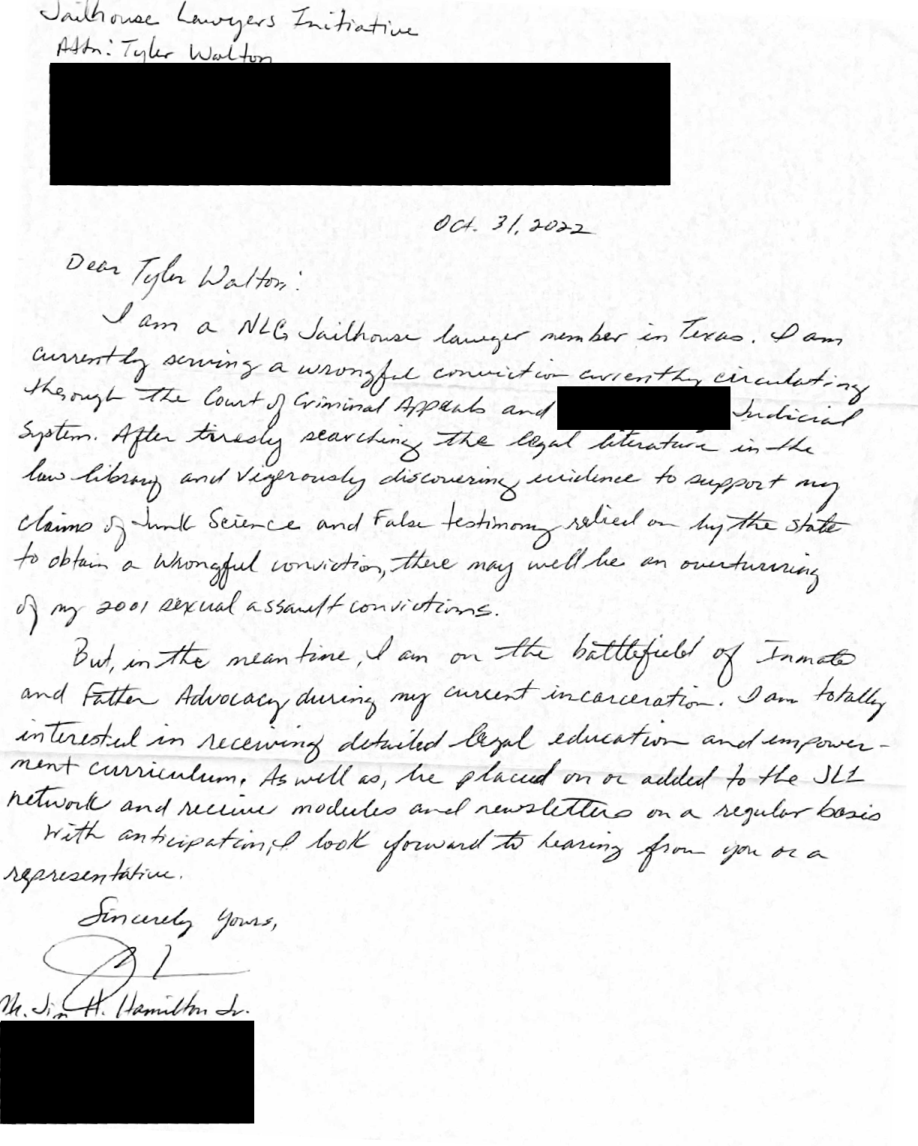 Jailhouse Lawyers Initiative
Attn: Tyler Walton
Oct. 31, 2022
Dear Tyler Walton:
I am a NLG Jailhouse lawyer member in Texas. I am
currently serving a wrongful conviction currently circulating
through the Court of Criminal Appeals and Judicial
System. After searching the legal literature in the
law library and vigerously discovering evidence to support my
claims of Junk Science and False testimony relied on by the state
to obtain a wrongful conviction, there may well be an overturning
of my 2001 sexual assault convictions.
But, in the meantime, I am on the battlefield of Inmate
and Father Advocacy during my current incarceration. I am totally
interested in receiving detailed legal education and empower-
ment curriculum. As well as, be placed on or added to the JLI
network and receive modules and newsletters on a regular basis
With anticipation, I look forward to hearing from you or a
representative.
Sincerely Yours,
Mr. Jim H. Hamilton Jr.